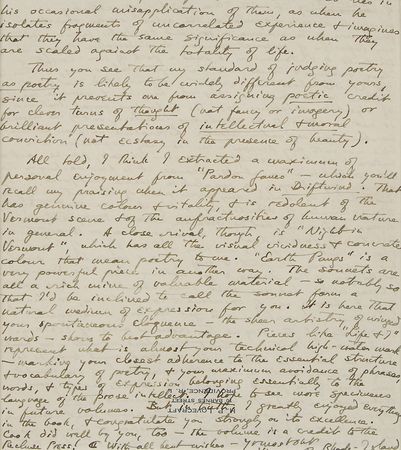 his occasional misapplication of them, as when he
isolates fragments of uncorrelated experience & imagines
that they have the same significance as when they
are scaled against the totality of life.
Thus you see that my standard of judging poetry
as poetry is likely to be widely different from yours,
since it prevents me from assigning poetic credit
for clever turns of thought (not fancy or imagery) or
brilliant presentations of intellectual & moral
conviction (not ecstasy in the presence of beauty).
All told, I think I extracted a maximum of
personal enjoyment from "Pardon — which you'll
recall my praising when it appeared in Driftwind. That
has genuine colour & vitality, & is redolent of the
Vermont scene & of the anfractuosities of human nature
in general. A close rival, though, is "Night in
Vermont", which has all the visual vividness & concrete
colour that mean poetry to me. is a
very powerful piece in another way. The sonnets are
all a rich mine of valuable material — so notably so
that I'd be inclined to call the sonnet form a
natural medium of expression for you. It is here that
your spontaneous eloquence — the sheer artistry of winged
words — shows to best advantage. Pieces like
represent what is almost your technical high-water mark
— marking your closest adherence to the essential structure
& vocabulary of poetry, & your maximum avoidance of phrases,
words, & types of expression belonging essentially to the
language of the prose intellect. I hope to see more specimens
in future volumes. But I greatly enjoyed everything
in the book, & congratulate you strongly on its excellence.
Cook did well by you, too — the volume is a credit to the
Recluse Press! With all best wishes — yr most obt
H. P. LOVECRAFT
10 BARNES STREET
PROVIDENCE, R. I.